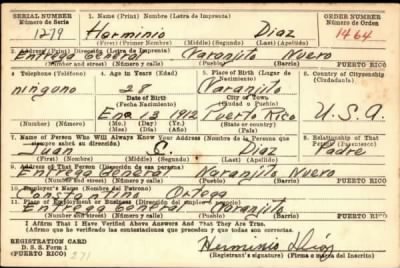 SERIAL NUMBER 1. Name (Print) Nombre (Letra de Imprenta) ORDER NUMBER
Número de Serie Número de Orden
1279 Herminio Diaz 1464
(First) (Primer Nombre) (Middle) (Segundo) (Last) (Apellido)
2. Address (Print) Dirección (Letra de Imprenta)
Entrega General Naranjito Nuevo
(Number and street) (Número y calle) (Town) (Población) PUERTO RICO
3 Telephone (Teléfono) 4 Age in Years (Edad) 5 Place of Birth (Lugar de Nacimiento) 6 Country of Citizenship (Ciudadanía)
ninguno 28 Naranjito
Date of Birth City or Town
(Fecha Nacimiento) (Ciudad o Pueblo)
Ene 3 1912 Puerto Rico U.S.A.
(Mo./Mes) (Day/Día) (Yr./Año)
7 Name of Person Who Will Always Know Your Address (Nombre de la Persona que siempre sabrá su dirección) 8 Relationship of That Person
Juan E. Diaz Padre
(First) (Primer Nombre) (Middle) (Segundo) (Last) (Apellido)
9 Address of That Person (Dirección de esa persona)
Entrega General Naranjito Nuevo
(Number and street) (Número y calle) (Town) (Población) PUERTO RICO
10 Employer's Name (Nombre del Patrono)
Constantino Ortega
11 Place of Employment or Business (Dirección del empleo o negocio)
Entrega General Naranjito
(Number and street) (Número y calle) (Town) (Población) PUERTO RICO
I Affirm That I Have Verified Above Answers and That They are True.
(Afirmo que he verificado las contestaciones que preceden y que todas son correctas.
REGISTRATION CARD
D. S. S. Form 1 Herminio Díaz
(Registrant's signature) (Firma o marca del Inscrito)